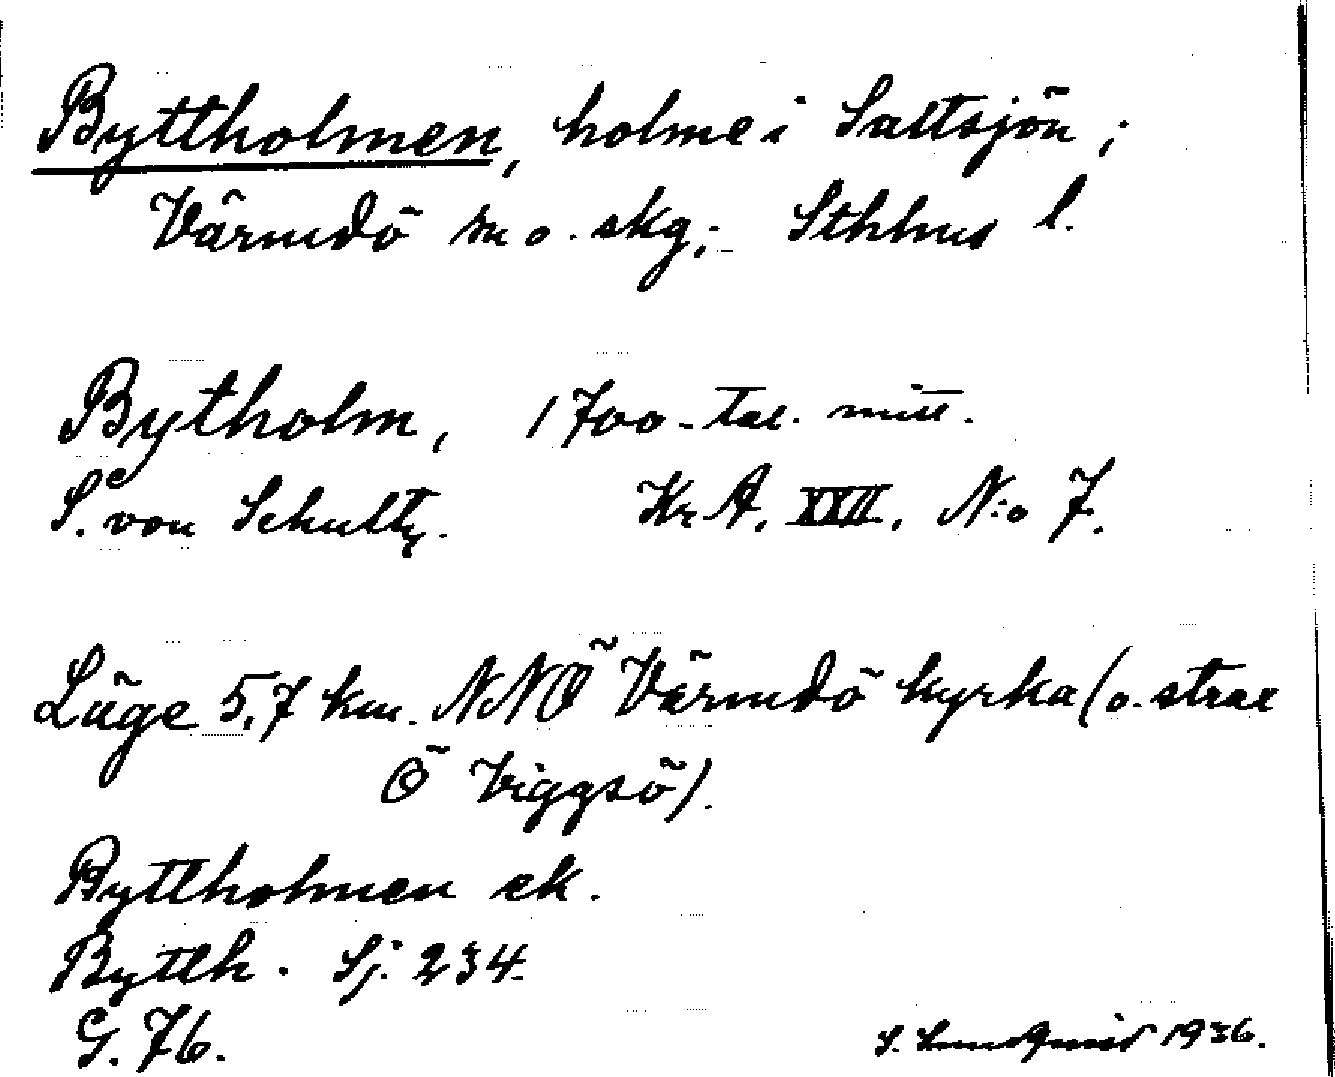 Byttholmen, holme i Saltsjön;
Värmdö sn o. skg; Sthhus l.
Bytholm, 1700-tal. mitt.
S. von Schultz. Kr A. XXII. N:o 7.
Läge 5,7 km. NNÖ Värmdö kyrka (o. strax
Ö Viggsö).
Byttholmen ek.
Bytth. Sj. 234
G. 76.
S. 1936.